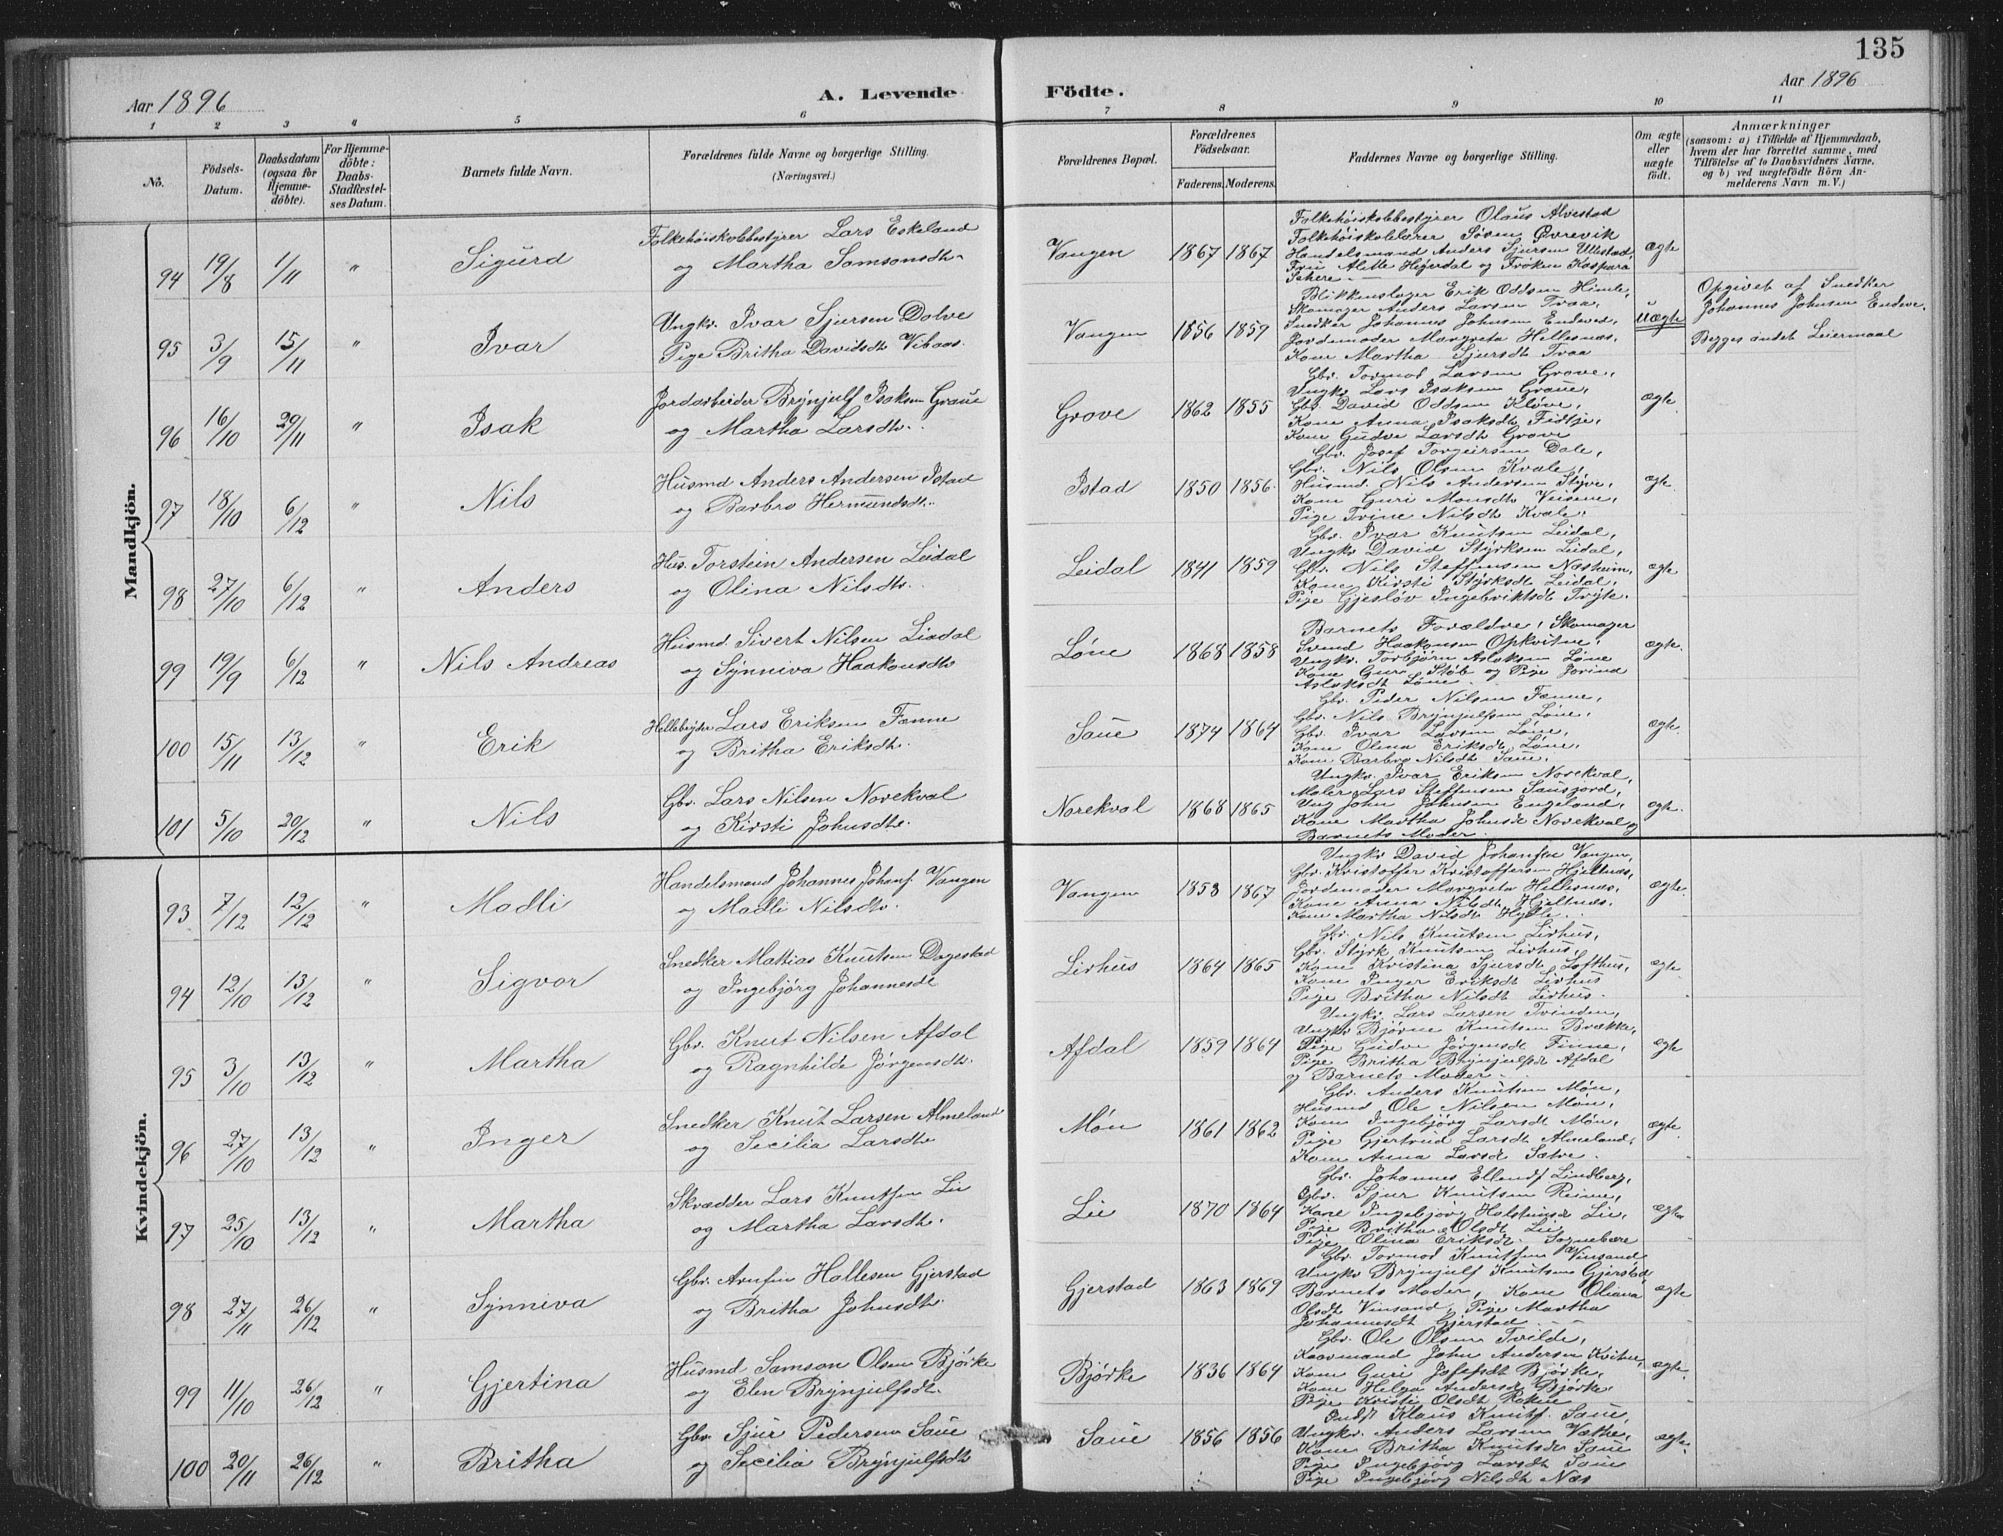 135
Aar 1896
A. Levende Födte.
Aar 1896
1 2 3 4 5 6 7 8 9 10 11
No.
Födsels-Datum.
Daabsdatum (ogsaa for Hjemmedöbte).
For Hjemmedöbte: Daabs-Stadfæstelses Datum.
Barnets fulde Navn.
Forældrenes fulde Navne og borgerlige Stilling. (Næringsvei.)
Forældrenes Bopæl.
Forældrenes Födselsaar.
Faderens. Moderens.
Faddernes Navne og borgerlige Stilling.
Om ægte eller uægte födt.
Anmærkninger
(saasom: a) i Tilfælde af Hjemmedaab, hvem der har forrettet samme, med Tilföielse af to Daabsvidners Navne, og b) ved uægtefödte Börn Anmelderens Navn m. V.)
Mandkjön.
94 19/8 1/11 " Sigurd
Folkehøiskolebestyrer Lars Eskeland
og Martha Samsonsdtr
Vangen 1867 1867
Folkehøiskolebestyrer Olaus Alvestad
Folkehøiskolelærer Søren Øvrevik
Handelsmand Anders Sjursen Ullestad,
Fru Alette Heyerdal og Frøken Kaspara
ægte
95 3/9 15/11 " Ivar
Ungkr. Ivar Sjursen Dolve
Pige Britha Davidsdtr
Vangen 1856 1859
Blikkenslager Erik Oddsen Himle,
Skomager Anders Larsen Traa,
Snedker Johannes Johnsen Endeved,
Jordemoder Margreta Hellesnæs,
Kone Martha Sjursdt Traa
uægte
Opgivet af Snedker
Johannes Johnsen Endeve.
Begges andet Leiermaal
96 16/10 29/11 " Isak
Jordarbeider Brynjulf Isaksen Graue
og Martha Larsdtr.
Grove 1862 1855
Gbr. Tormod Larsen Grove,
Ungkr Lars Isaksen Graue,
Gbr. David Oddsen Kløve,
Kone Anna Isaksdt Fidtje,
Kone Gudve Larsdt Grove
ægte
97 18/10 6/12 " Nils
Husmd Anders Andersen Istad
og Barbro Hermundsdtr.
Istad 1850 1856.
Gbr. Josef Torgeirsen Dale,
Gbr. Nils Olsen Kvale,
Husmd. Nils Andersen Styve,
Kone Guri Monsdt
Pige Trine Nilsdt Kvale.
ægte.
98 27/10 6/12 " Anders
Hus. Torstein Andersen Leidal
og Olina Nilsdtr.
Leidal 1841 1859
Gbr. Ivar Knutsen Leidal,
Ungkr David Styrksen Leidal,
Gbr. Nils Steffensen Næsheim,
Kone Kirsti Styrksdt Leidal,
Pige Gjesløv Ingebriktsdt
ægte
99 19/9 6/12 " Nils Andreas
Husmd Sivert Nilsen Liadal
og Synniva Haakonsdtr
Løne 1868 1858
Barnets Forældre, Skomager
Svend Haakonsen Opkvitne,
Ungkr. Torbjørn Aslaksen Løne
Kone Guri Støb og Pige Jorind
Aslaksdt Løne
ægte.
100 15/11 13/12 " Erik
Hellebryder Lars Eriksen Fenne
og Britha Eriksdtr.
Saue 1874 1864
Gbr. Peder Nilsen Fenne,
Gbr. Nils Brynjulfsen Løne,
Gbr. Ivar Larsen Løne,
Kone Olina Eriksdt Løne,
Kone Barbro Nilsdt Saue.
ægte.
101 5/10 20/12 " Nils
Gbr. Lars Nilsen Norekval
og Kirsti Johnsdtr.
Norekval 1868 1865
Ungkr. Ivar Eriksen Norekval,
Maler Lars Steffensen Sausjord,
Ung John Johnsen Engeland,
Kone Martha Johnsdt Norekval og
Barnets Moder.
ægte.
Kvindekjön.
93 7/12 12/12 " Madli
Handelsmand Johannes Johans. Vangen
og Madli Nilsdtr.
Vangen 1853 1867
Ungkr David Johansen Vangen,
Gbr. Kristoffer Kristoffersen Hjeltnæs,
Jordemoder Margreta Hellesnæs,
Kone Anna Nilsdt Hjeltnæs.
Kone Martha Nilsdt Hylle.
ægte.
94 12/10 13/12 " Sigvor
Snedker Mattias Knutsen Dagestad
og Ingebjørg Johannesdt
Lirhus 1864 1865
Gbr. Nils Knutsen Lirhus,
Gbr. Styrk Knutsen Lirhus,
Kone Kristina Sjursdt Lofthus,
Kone Inger Eriksdt Lirhus
Pige Britha Nilsdt Lirhus.
ægte
95 3/10 13/12 " Martha
Gbr. Knut Nilsen Afdal
og Ragnhilde Jørgensdtr.
Afdal 1859 1864
Ungkr. Lars Larsen Tvinden,
Ungkr Bjørne Knutsen Brække,
Pige Gudve Jørgensdt Finne,
Pige Britha Brynjulfsdt Afdal
og Barnets Moder.
ægte
96 27/10 13/12 " Inger
Snedker Knut Larsen Almeland
og Secilia Larsdtr
Møn 1861 1862
Gbr. Anders Knutsen Møn,
Husmd Ole Nilsen Møn,
Kone Ingebjørg Larsdt Møn,
Pige Gjertrud Larsdt Almeland,
Kone Anna Larsdt Sætve.
ægte.
97 25/10 13/12 " Martha
Skrædder Lars Knutsen Lie
og Martha Larsdtr.
Lie 1870 1864
Gbr. Johannes Ellends. Lindberg,
Gbr. Sjur Knutsen Reime,
Kone Ingebjørg Holstensdt Lie,
Pige Britha Olsdt Lie,
Pige Olina Eriksdt.
ægte
98 27/11 26/12 " Synniva
Gbr. Arnfin Hallesen Gjerstad
og Britha Johnsdtr.
Gjerstad 1863 1869
Gbr. Tormod Knutsen Vinsand
Ungkr Brynjulf Knutsen Gjerstad,
Barnets Moder, Kone Oliana
Olsdt Vinsand, Pige Martha
Johannesdt Gjerstad
ægte
99 11/10 26/12 " Gjertina
Husmd Samson Olsen Bjørke
og Elen Brynjulfsdt.
Bjørke 1836 1864
Gbr. Ole Olsen Tvilde,
Kaarmand John Andersen
Kone Guri Josefsdt Bjørke,
Kone Helga Andersdt Bjørke
Pige Kristi Olsdt Rokne
ægte.
100 20/11 26/12 " Britha
Gbr. Sjur Pedersen Saue
og Secilia Brynjulfsdt
Saue 1856 1856
Klaus Knuts. Saue,
Ungkr. Anders Larsen Væthe,
Kone Britha Knutsdt Saue
Pige Ingebjørg Larsdt Saue
Pige Ingebjørg Nilsdt Næs
ægte.